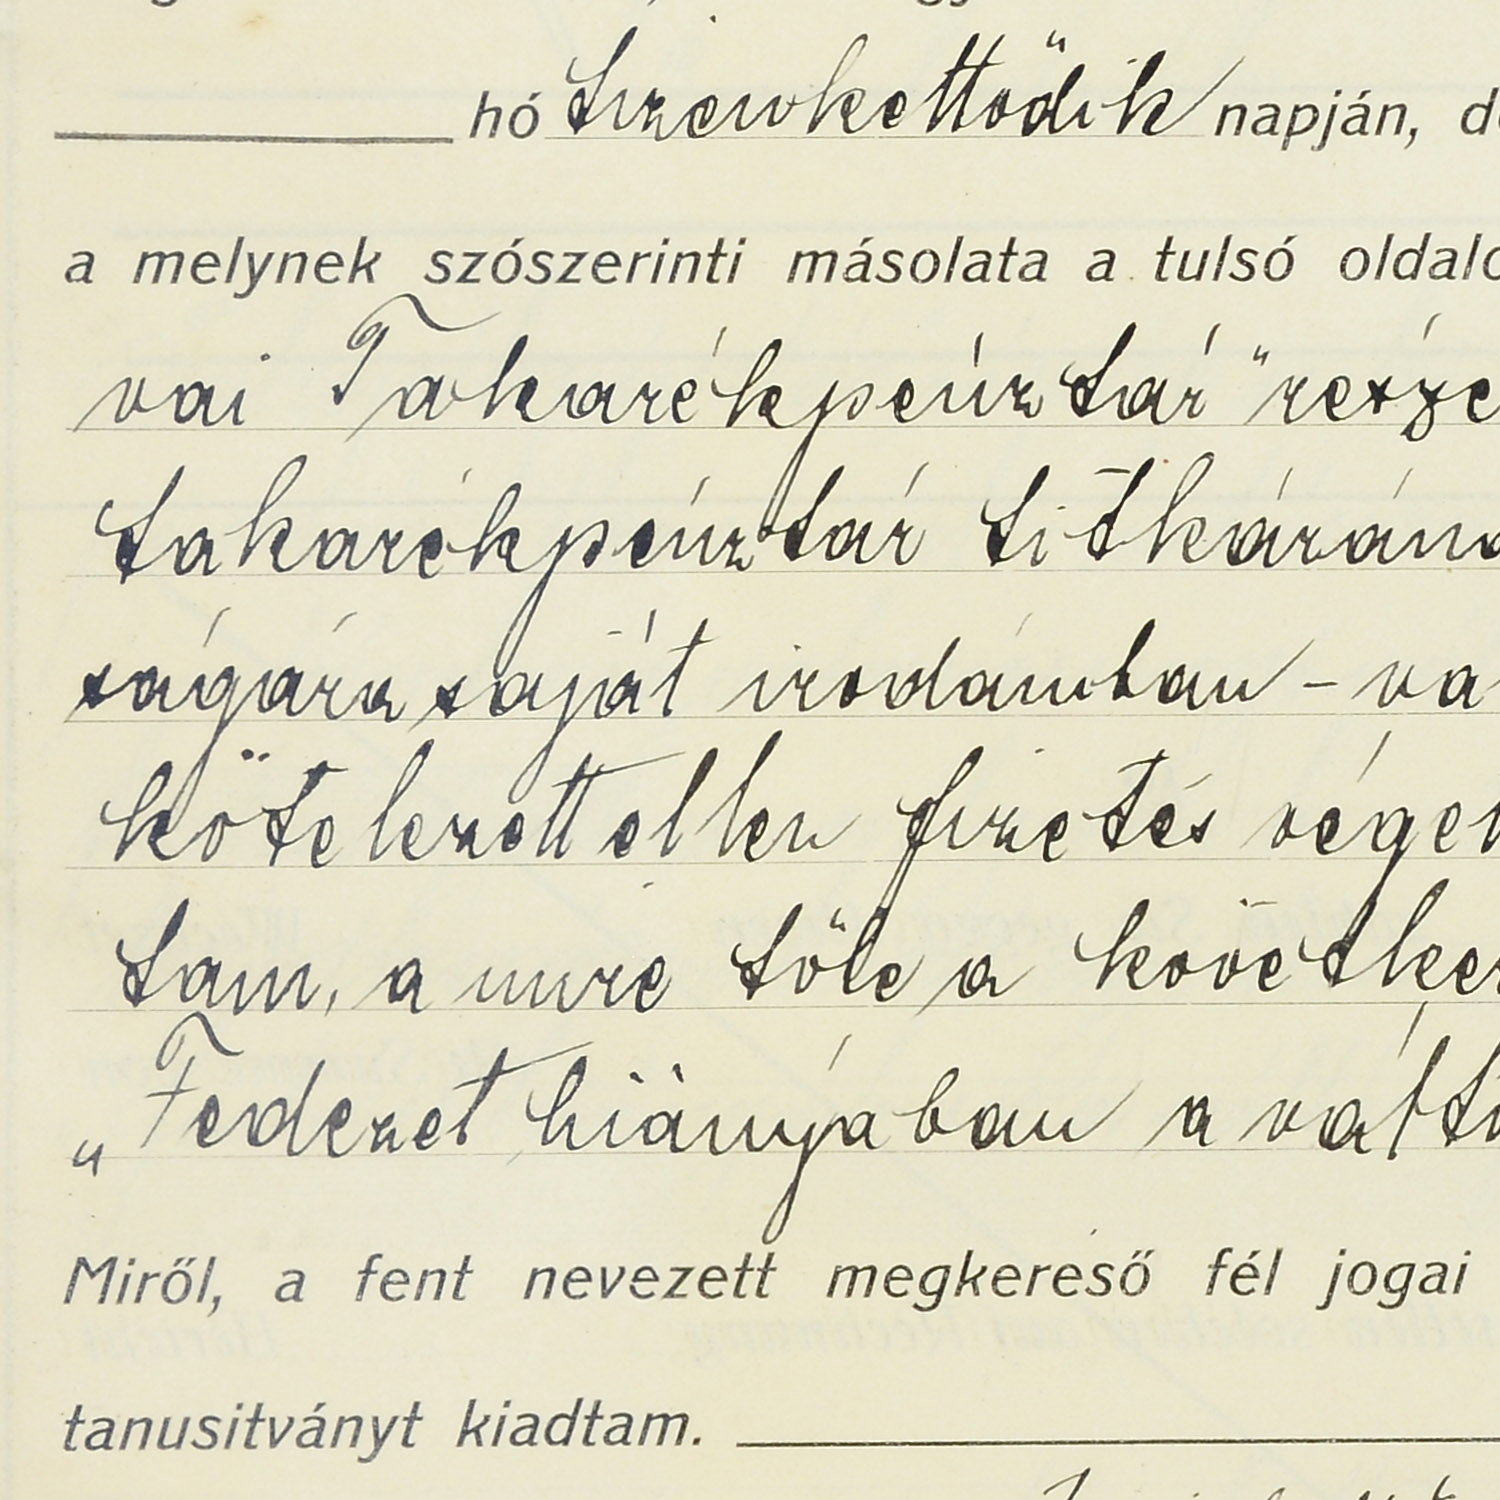 hó tizenkettődik napján, de
a melynek szószerinti másolata a tulsó oldalo
vai Takarékpénztár" része
takarékpénztár titkárána
ságára saját irodámban - va
kötelezett ellen fizetés végett
tam, a mire tőle a következ
„Fedezet hiányában a váltó
Miről, a fent nevezett megkereső fél jogai
tanusitványt kiadtam.